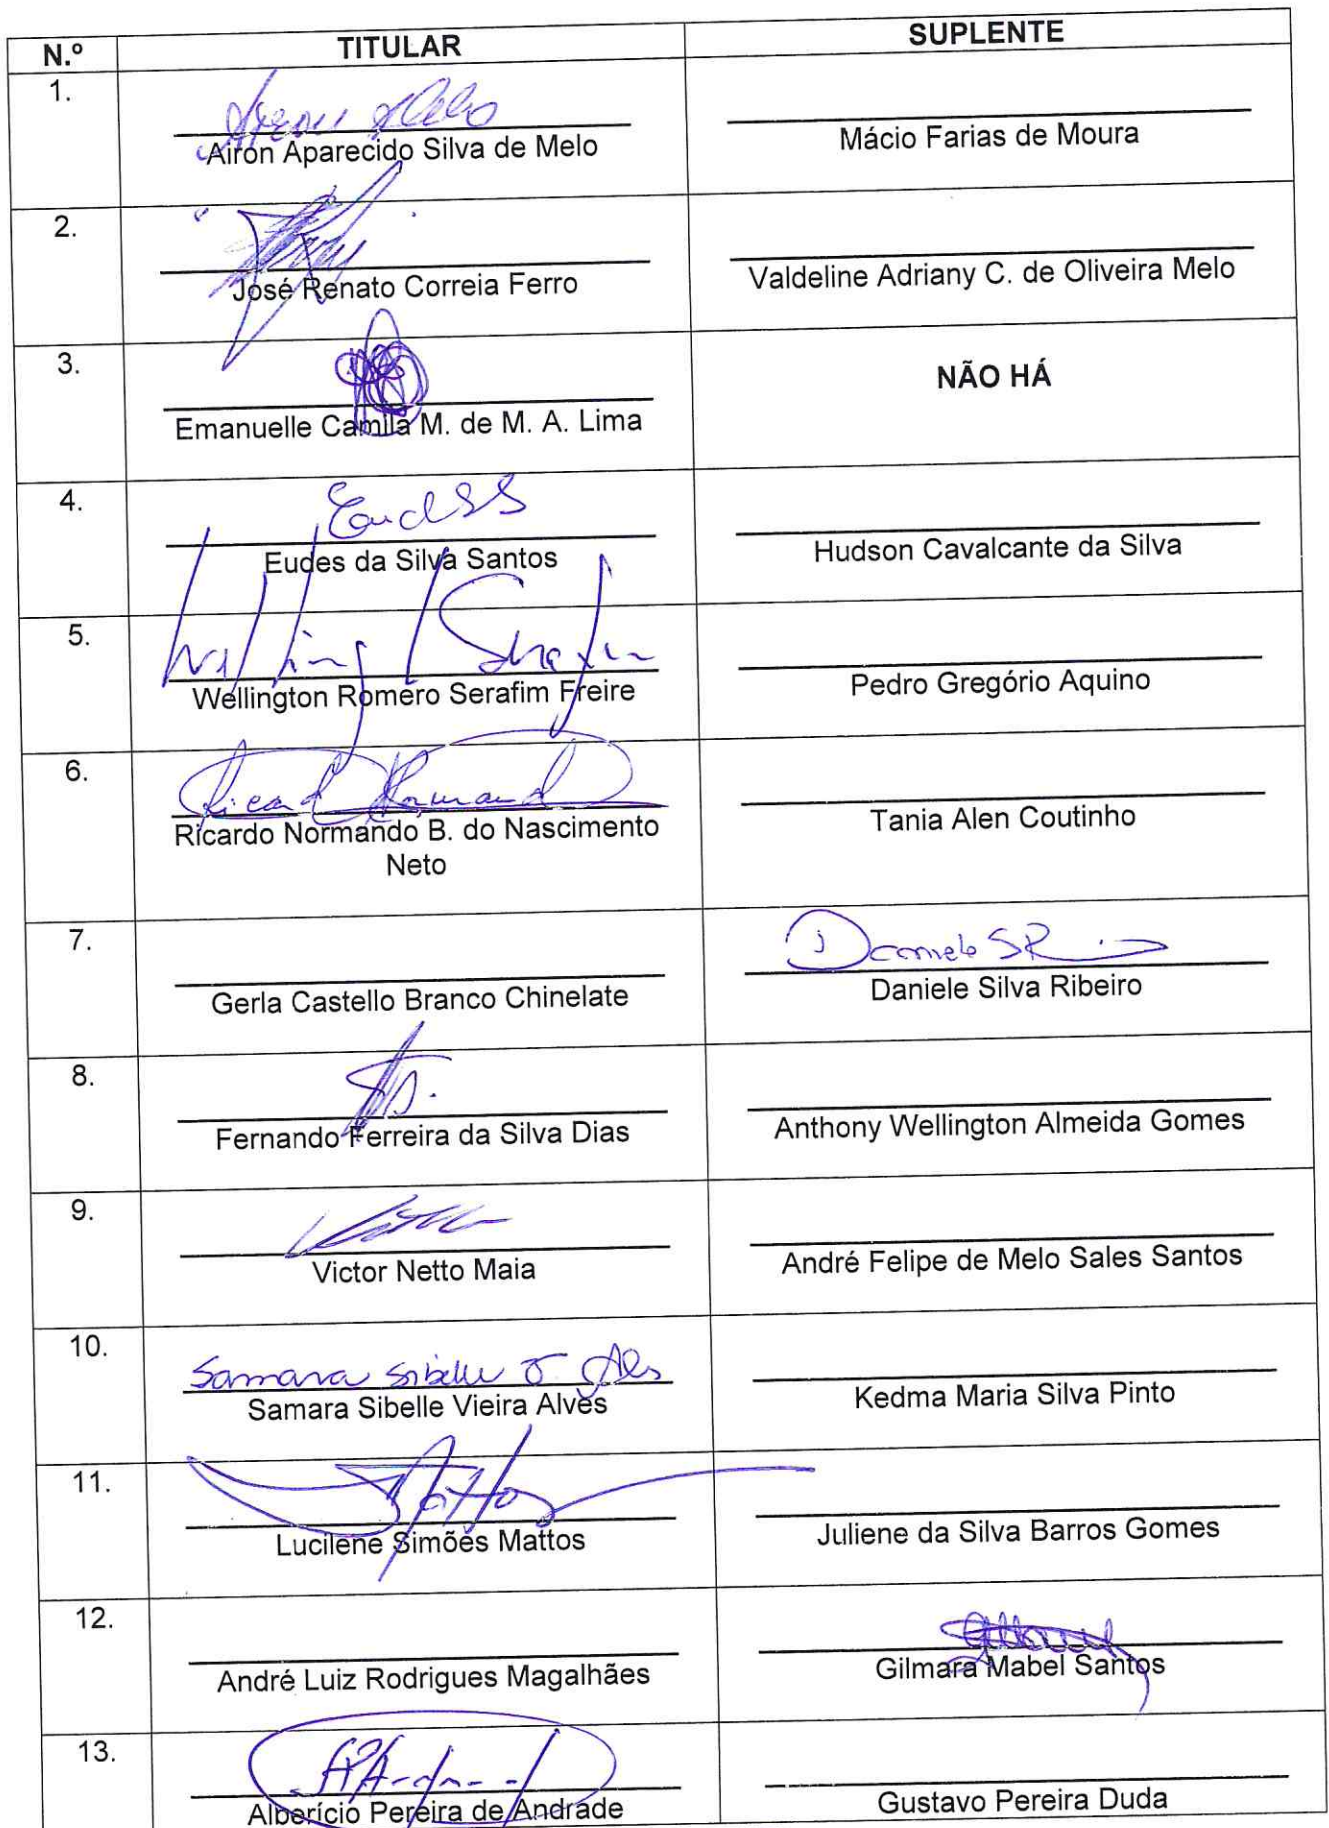 N.º TITULAR SUPLENTE
1.
Airon Aparecido Silva de Melo Mácio Farias de Moura
2.
José Renato Correia Ferro Valdeline Adriany C. de Oliveira Melo
3. NÃO HÁ
Emanuelle Camila M. de M. A. Lima
4.
Eudes da Silva Santos Hudson Cavalcante da Silva
5.
Wellington Romero Serafim Freire Pedro Gregório Aquino
6.
Ricardo Normando B. do Nascimento Tania Alen Coutinho
Neto
7.
Gerla Castello Branco Chinelate Daniele Silva Ribeiro
8.
Fernando Ferreira da Silva Dias Anthony Wellington Almeida Gomes
9.
Victor Netto Maia André Felipe de Melo Sales Santos
10.
Samara Sibelle
Samara Sibelle Vieira Alves Kedma Maria Silva Pinto
11.
Lucilene Simões Mattos Juliene da Silva Barros Gomes
12.
André Luiz Rodrigues Magalhães Gilmara Mabel Santos
13.
Alberício Pereira de Andrade Gustavo Pereira Duda